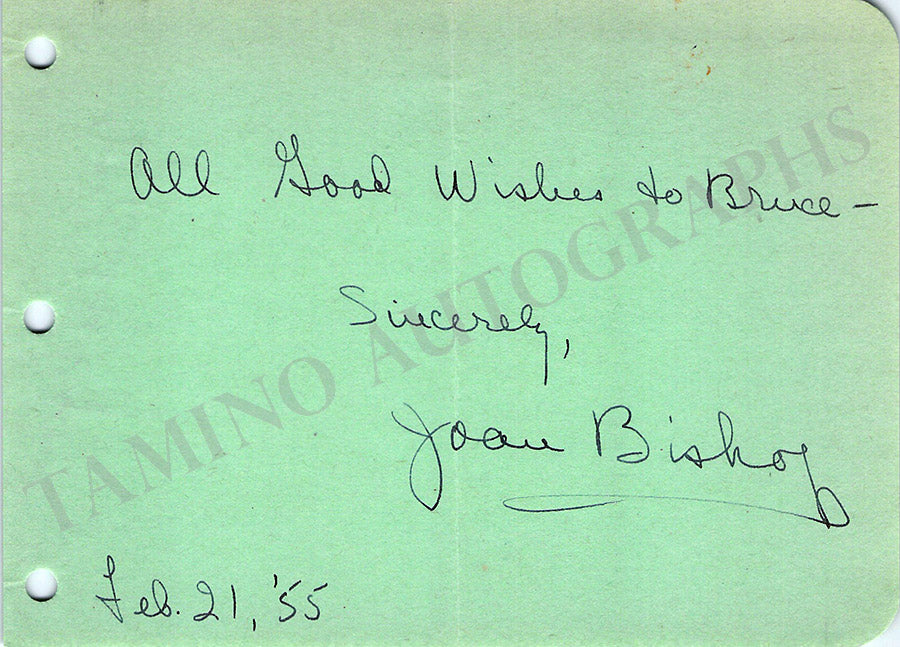 All Good Wishes to Bruce –
Sincerely,
Joan Bishop
Feb. 21, '55
TAMINO AUTOGRAPHS